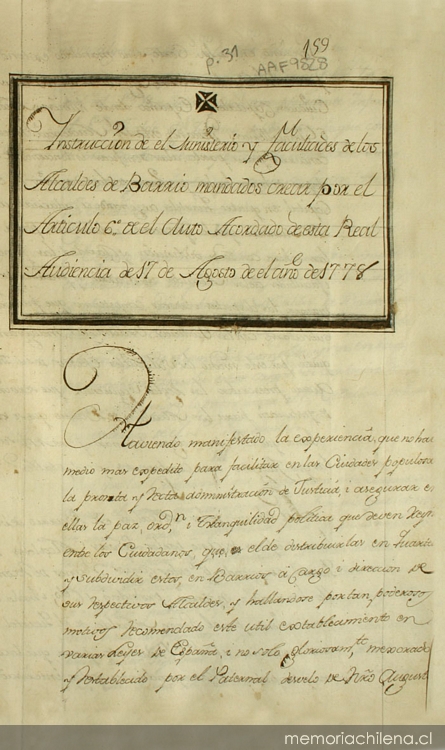 159
p. 31
AAF9828
Instruccion de el Ministerio y Facultades de los
Alcaldes de Barrio mandados crear por el
Articulo 6º de el Auto Acordado de esta Real
Audiencia de 17 de Agosto de el año de 1778
Haviendo manifestado la experiencia, que no hai
medio mas expedito para facilitar en las Ciudades populosas
la pronta y recta administración de Justicia i asegurar e
ellas la paz, ordn, i tranquilidad politica que deven Reyn
entre los Ciudadanos, que el de destribuirlas en Quarte
y subdividir estos, en Barrios á cargo i direccion de
sus respectivos Alcaldes, y hallandose por tan poderosos
motivos recomendado este util establecimiento en
varias Leyes de España, i no solo gloriosamte mexorado
y restablecido por el Paternal desvelo de Nro August
memoriachilena.cl